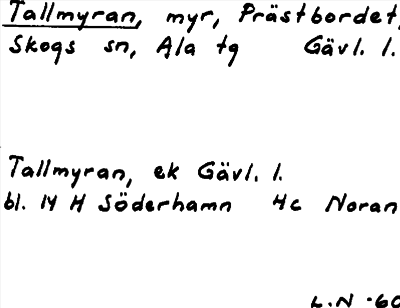 Tallmyran, myr, Prästbordet,
Skogs sn, Ala tg Gävl. l.
Tallmyran, ek Gävl. l.
bl. 14 H Söderhamn 4c Noran
L.N -60